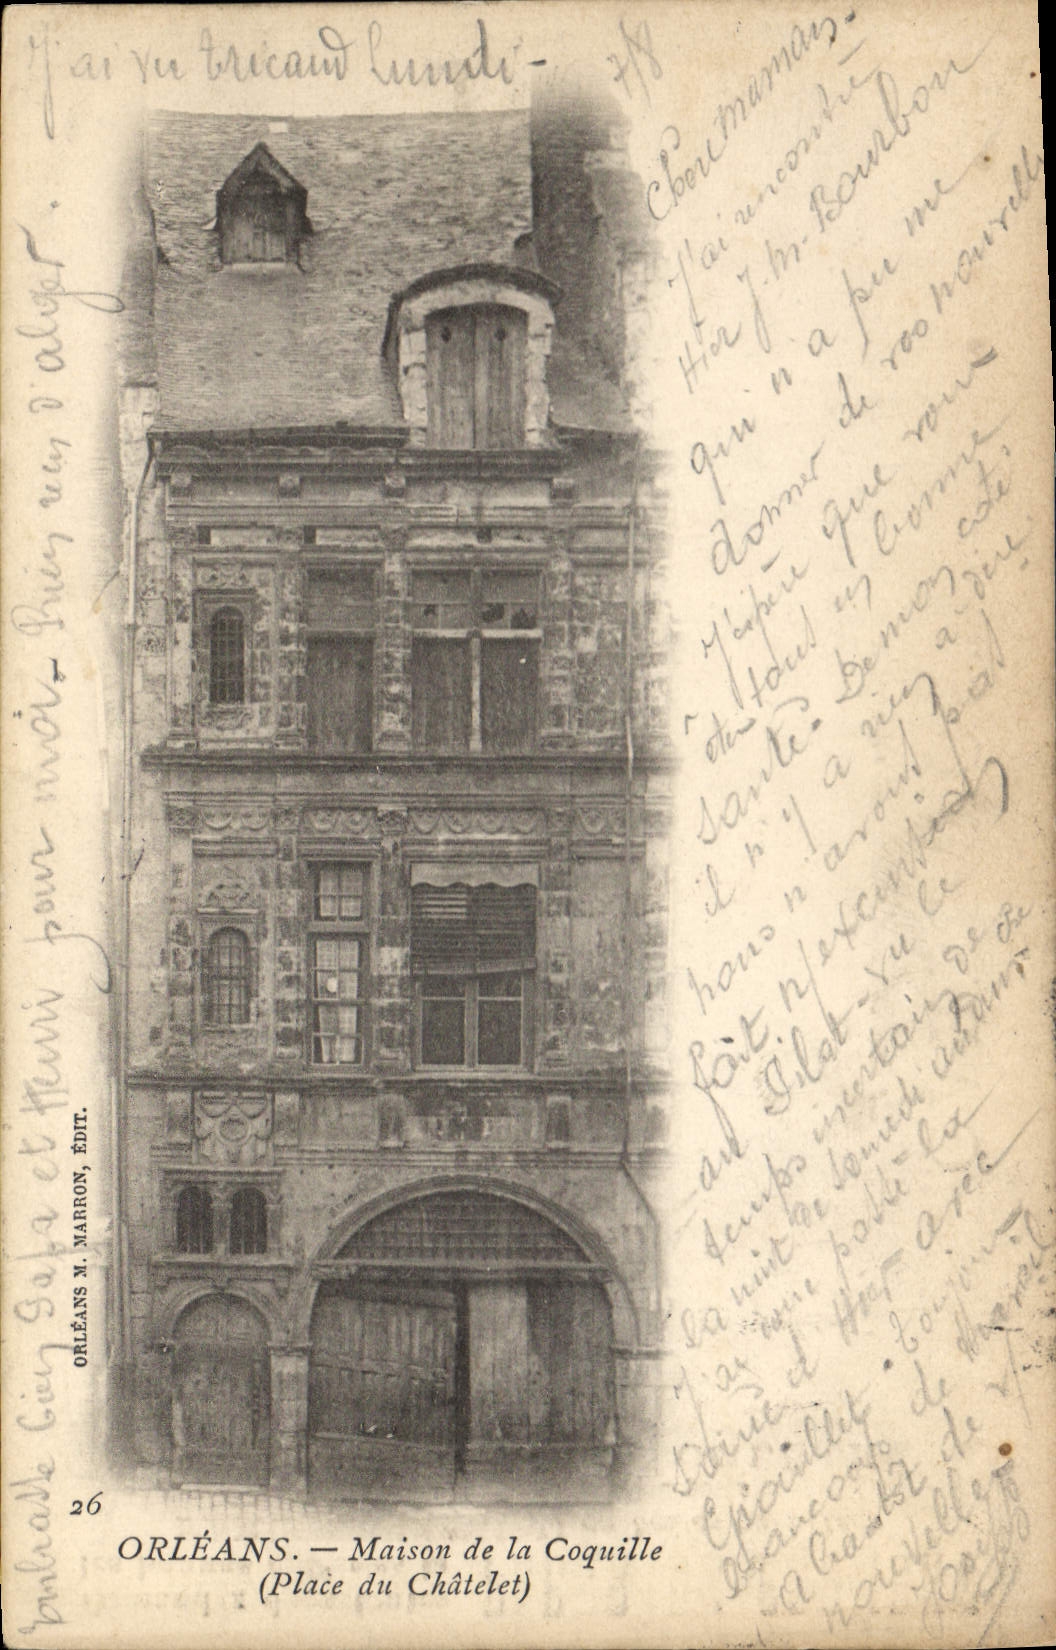 J'ai vu Tricaud Lundi -
7/8
Chère maman -
J'ai rencontré
Hier J. M. Bourbon
qui n'a pu me
donner de vos nouvelles
J'espère que vous
êtes tous en bonne
santé. De mon coté,
il n'y a rien à dire.
nous n'avons pas
fait n/ excursion
au Pilat - vu le
temps incertain de
la nuit de Samedi
J'ai passé la
Hier avec
toujours
beaucoup de
A bientôt de
nouvelles
Joseph
Embrasse bien Papa et Henri pour moi - Rien reçu d'Alger.
ORLÉANS M. MARRON, ÉDIT.
26
ORLÉANS. — Maison de la Coquille
(Place du Châtelet)